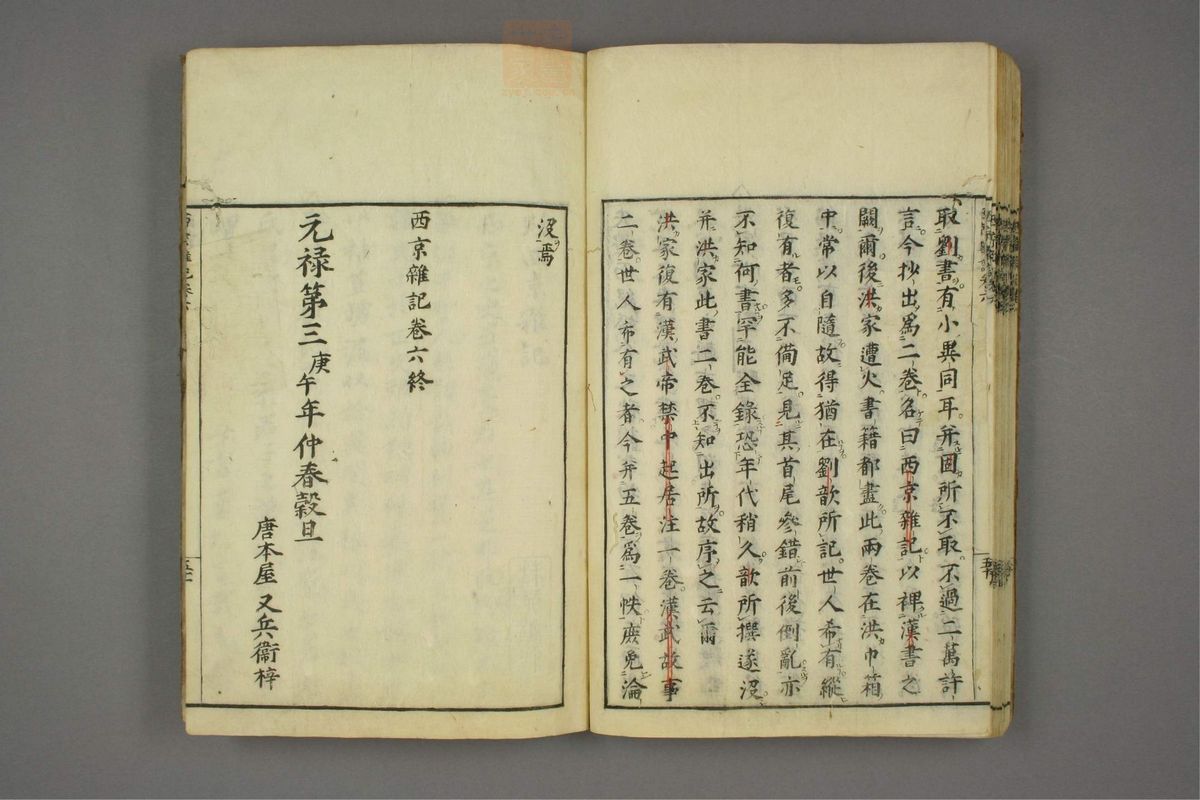 取劉書有小異同耳并固所不取不過二萬許
言今抄出爲二卷名曰西京雜記以裨漢書之
闕爾後洪家遭火書籍都盡此兩卷在洪巾箱
中常以自隨故得猶在劉歆所記世人希有縱
復有者多不備足見其首尾參錯前後倒亂亦
不知何書罕能全錄恐年代稍久歆所撰遂沒
并洪家此書二卷不知出所故序之云爾
洪家復有漢武帝禁中起居注一卷漢武故事
二卷世人希有之者今并五卷爲一帙庶免淪
沒焉
西京雜記卷六終
元禄第三庚午年仲春穀旦
唐本屋 又兵衞梓